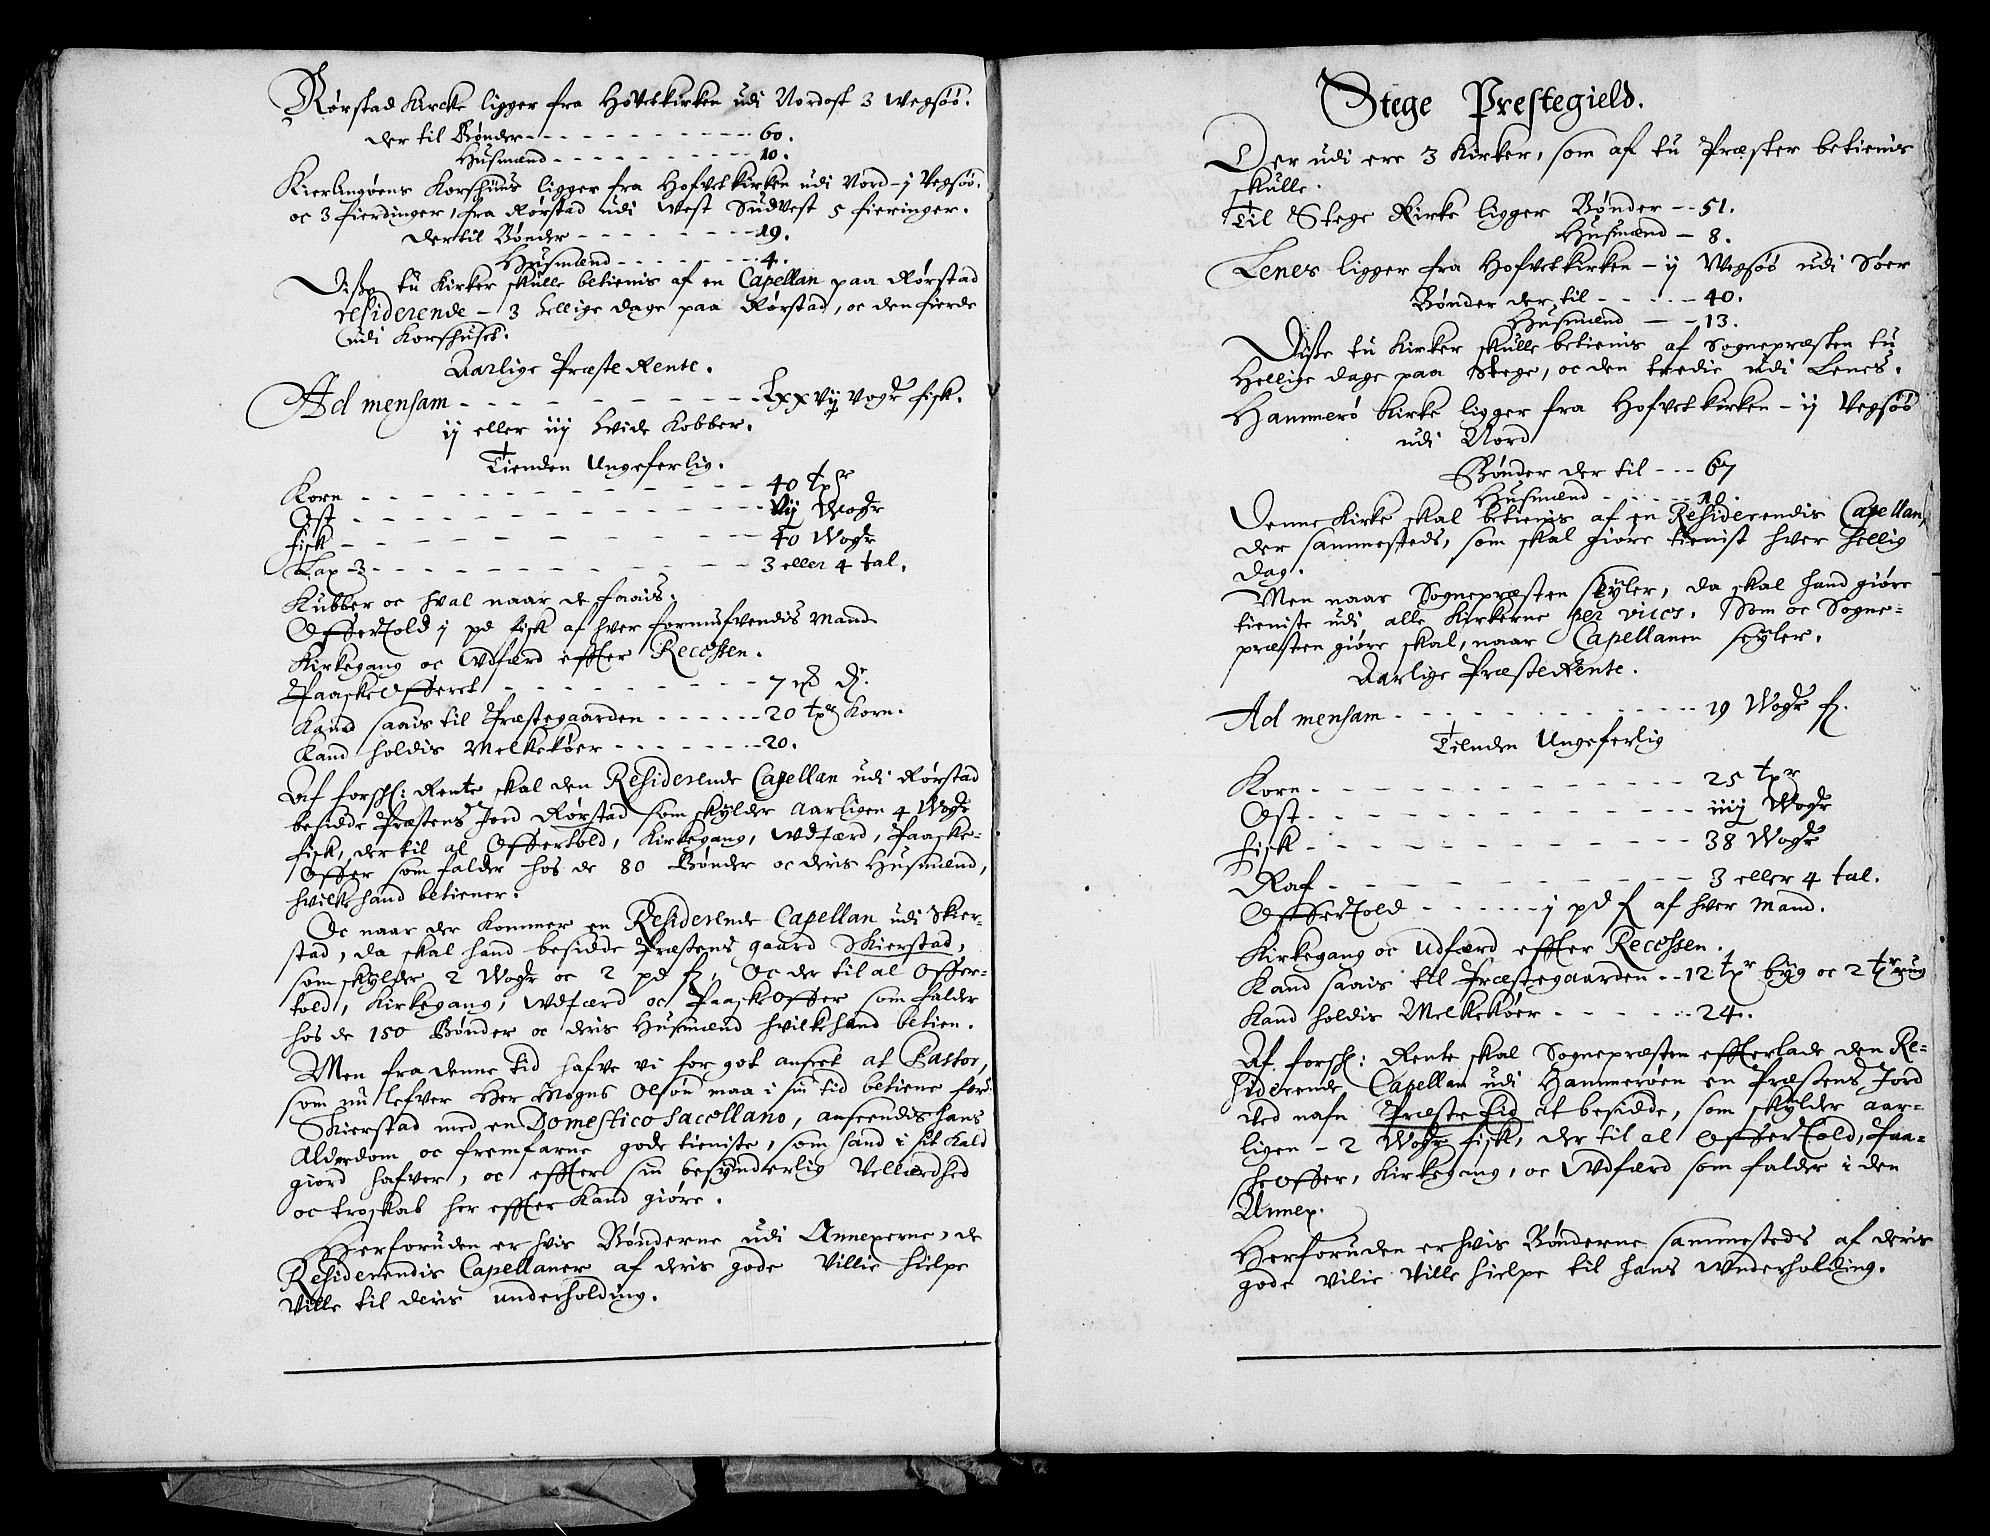 Rørstad Kircke ligger fra Hovetkirken udi Nordost 3 Wegsøø.
der til Bønder - - - 60.
Husmænd - - - 10.
Kierlingøens Korshuus ligger fra Hofvetkirken udi Nord - j Vegsøø.
oc 3 fierdinger, fra Rørstad udi West Sudvest 5 fieringer.
der til Bønder - - - 19.
Husmænd - - - 4.
Disse tu Kirker skulle betienis af en Capellan paa Rørstad
residerende - 3 hellige dage paa Rørstad, oc den fierde
udi Korshuset.
Aarlige Præste Rente.
Ad mensam - - - Lxxvij vogr fisk.
ij eller iij hvide Kobber.
Tienden Ungeferlig.
Korn - - - 40 tpr
Ost - - - vij Wogr
fisk - - - 40 Wogr
Lax - - - 3 eller 4 tal.
Kubber oc hval naar de faais.
Offertold j pd fisk af hver formufvendis Mand
Kirkegang oc Udfærd effter Recessen.
PaaskeOfferet - - - 7 eß Dr.
Kand saais til Præstegaarden - - - 20 tpr Korn.
Kand holdis Melkekøer - - - 20.
Af forsch: Rente skal den Residerende Capellan udi Rørstad
besidde Præstens Jord Rørstad som skylder aarligen 4 Wogr
fisk, der til al Offertold, Kirkegang, Udfærd, Paaske-
Offer som falder hos de 80 Bønder oc deris Husmænd,
hvilke hand betiener.
Oc naar der kommer en Residerende Capellan udi Skier-
stad, da skal hand besidde Præstens gaard Skierstad,
som skylder 2 Wogr oc 2 pd f, Oc der til al Offer-
told, Kirkegang, Udfærd oc PaaskeOffer som falder
hos de 150 Bønder oc deris Husmænd hvilke hand betien.
Men fra denne tid hafve vi for got anseet at Pastor,
som nu lefver Her Mogns Olsøn maa i sin tid betiene for:
Skierstad med en Domestico Sacellano, anseendis hans
Alderdom oc fremfarne gode tieniste, som hand i sit Kald
giord hafver, oc effter sin besynderlig Vellærdhed
oc troskab her effter Kand giøre.
Herforuden er hvis Bønderne udi Annexerne, de
Residerendis Capellaner af deris gode Villie hielpe
Ville til deris underholding.
Stege Prestegield.
Der udi ere 3 Kirker, som af tu Præster betienis
skulle.
Til Stege Kirke ligger Bønder - - 51.
Husmænd - 8.
Lenes ligger fra Hofvetkirken - ij Wegsøø udi Søer
Bønder der til - - - 40.
Husmænd - - 13.
Disse tu Kirker skulle betienis af Sognepræsten tu
Hellige dage paa Stege, oc den tredie udi Lenes.
Hammerø Kirke ligger fra Hofvetkirken - ij Vegsøø
udi Nord
Bønder der til - - - 67
Husmænd - - - 10.
Denne Kirke skal betienis af en Residerendis Capellan,
der sammesteds, som skal giøre tienist hver hellig
dag.
Men naar Sognepræsten seyler, da skal hand giøre
tieniste udi alle Kirkerne per vices. Som oc Sogne-
præsten giøre skal, naar Capellanen seyler.
Aarlige PræsteRente.
Ad mensam - - - 19 Wogr f.
Tienden Ungeferlig
Korn - - - 25 tpr
Ost - - - iiij Wogr
fisk - - - 38 Wogr
Raf - - - 3 eller 4 tal.
Offertold - - - j pd f af hver Mand.
Kirkegang oc Udfærd effter Recessen.
Kand saais til Præstegaarden - - 12 tpr byg oc 2 tpr rug
Kand holdis Melkekøer - - - 24.
Af forsch: Rente skal Sognepræsten effterlade den Re-
siderende Capellan udi Hammerøen en Præstens Jord
ved nafn Præste Eid at besidde, som skylder aar-
ligen - 2 Wogr fisk, der til al Offertold, Paa-
skeOffer, Kirkegang, oc Udfærd som falder i den
Annex.
Herforuden er hvis Bønderne sammesteds af deris
gode Vilie Ville hielpe til hans Underholding.